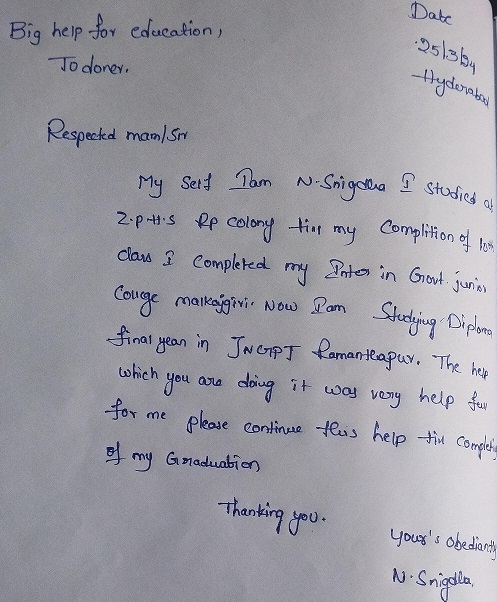 Date
25/3/24
Hyderabad
Big help for education,
To doner.
Respected mam/Sir
My Self Iam N.Snigdha I studied at
Z.p.H.S Rp colony till my Complition of 10th
class I completed my Inter in Govt. junior
College malkajgiri. Now Iam Studying Diploma
final year in JNGPT Ramanthapur. The help
which you are doing it was very help full
for me please continue this help till completi
of my Graduation
Thanking you.
your's obediantly
N.Snigdha.